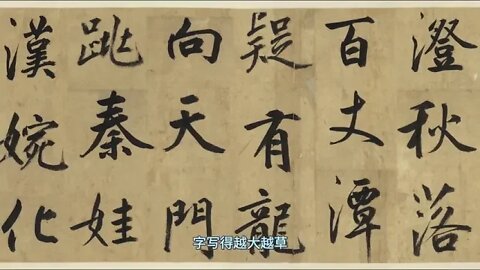 澄秋落
百丈潭
疑有龍
向天門
秦娃
漢婉化
字写得越大越草